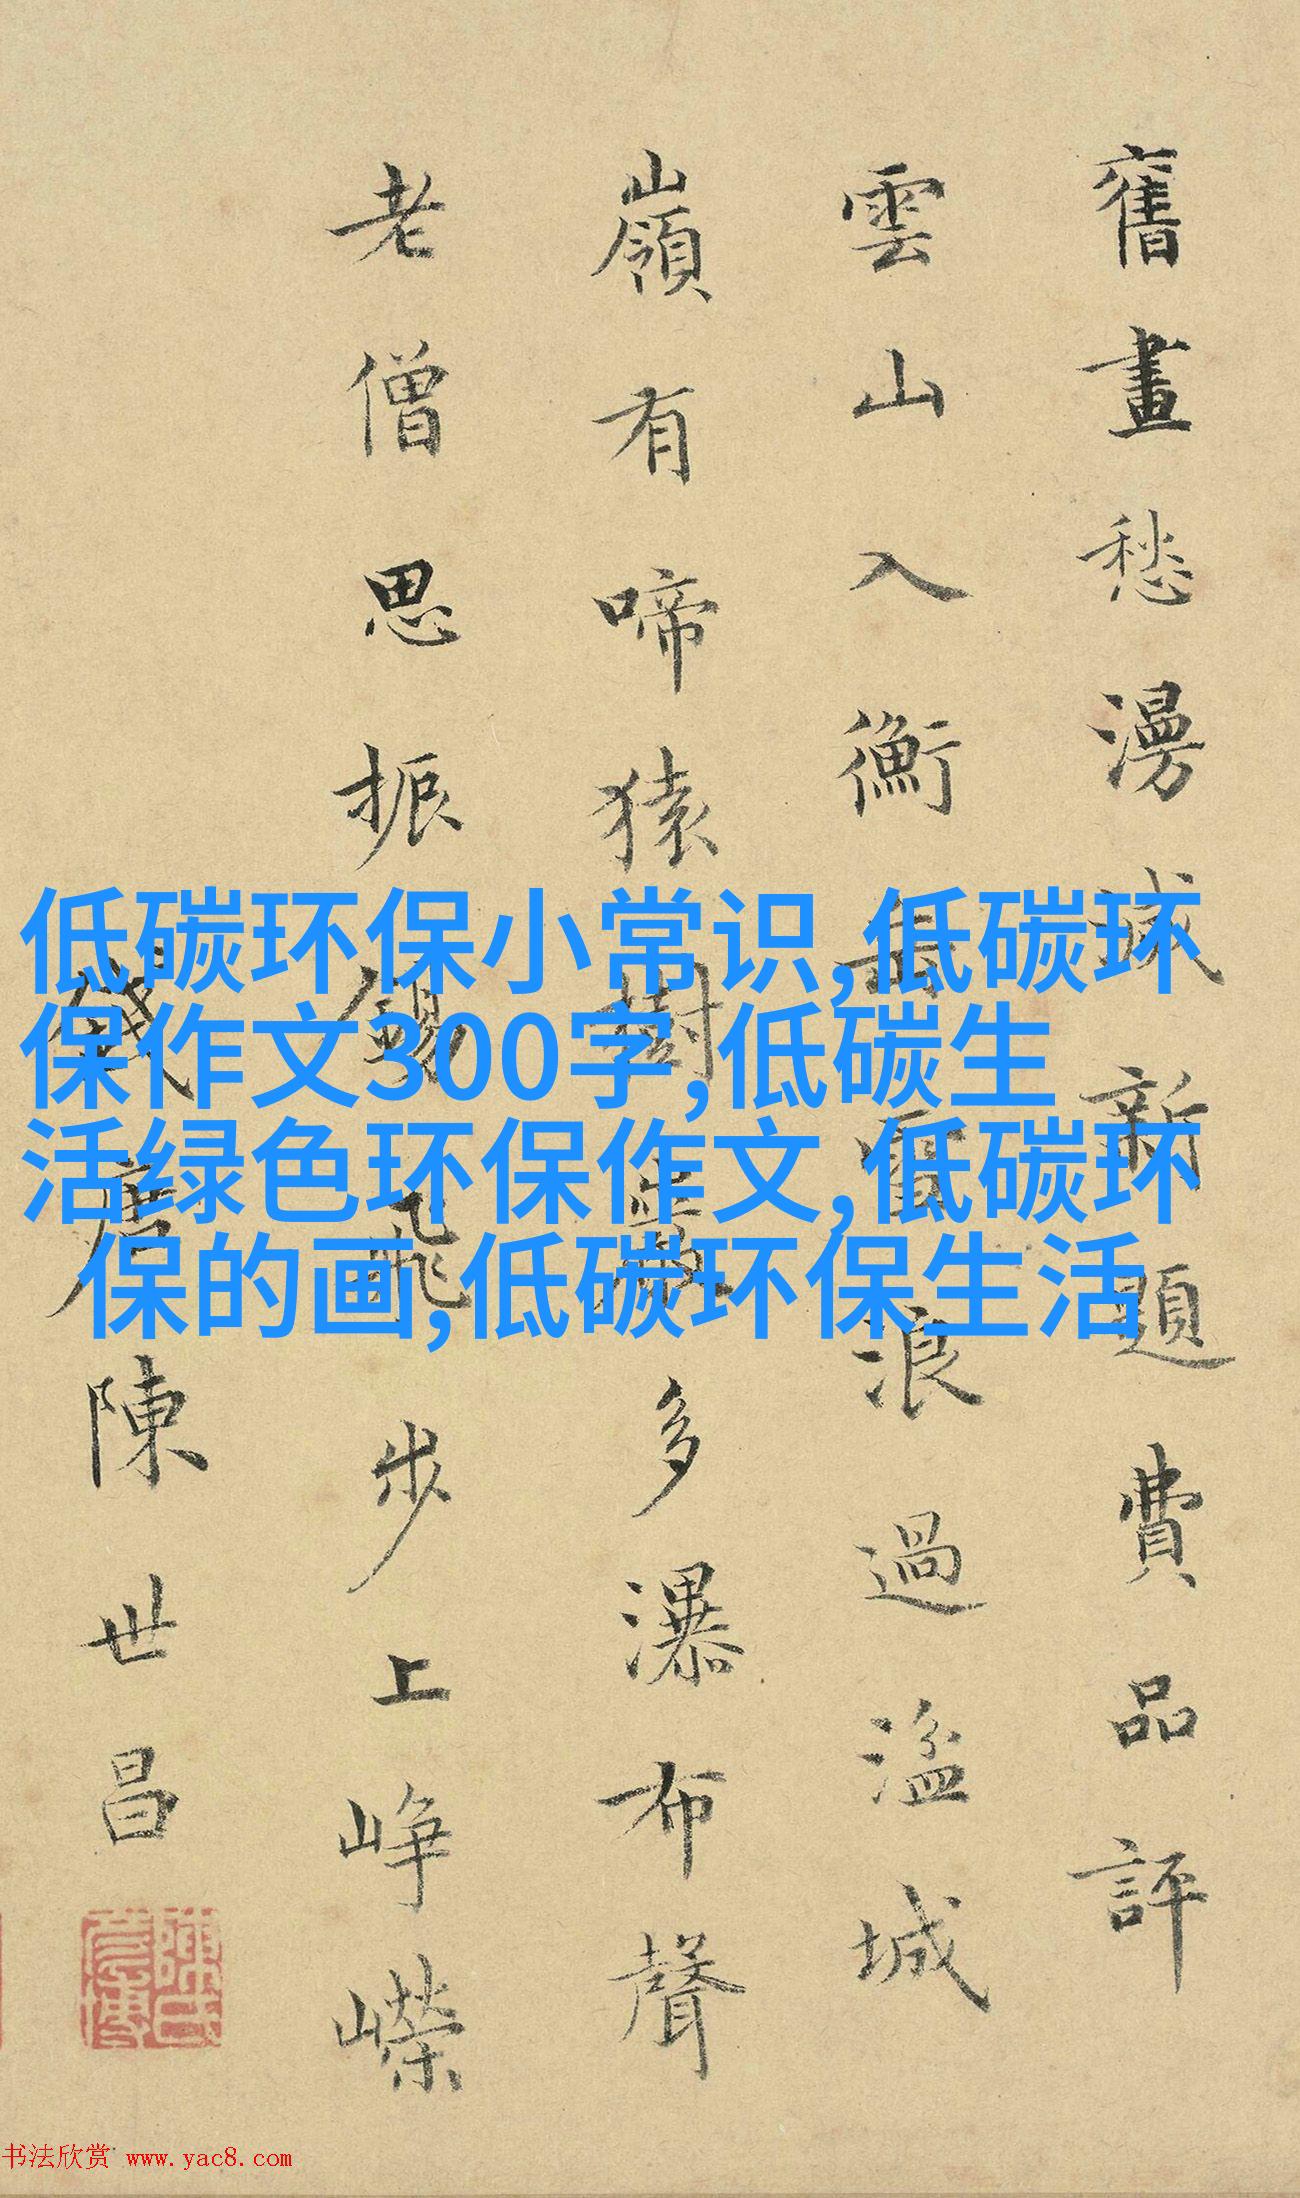 舊畫愁漫滅新題費品評
雲山入衡岳雪浪過湓城
嶺有啼猿樹
多瀑布聲
老僧思振錫飛步上崢嶸
錢唐陳世昌
低碳环保小常识,低碳环
保作文300字,低碳生
活绿色环保作文,低碳环
保的画,低碳环保生活
书法欣赏 www.yac8.com